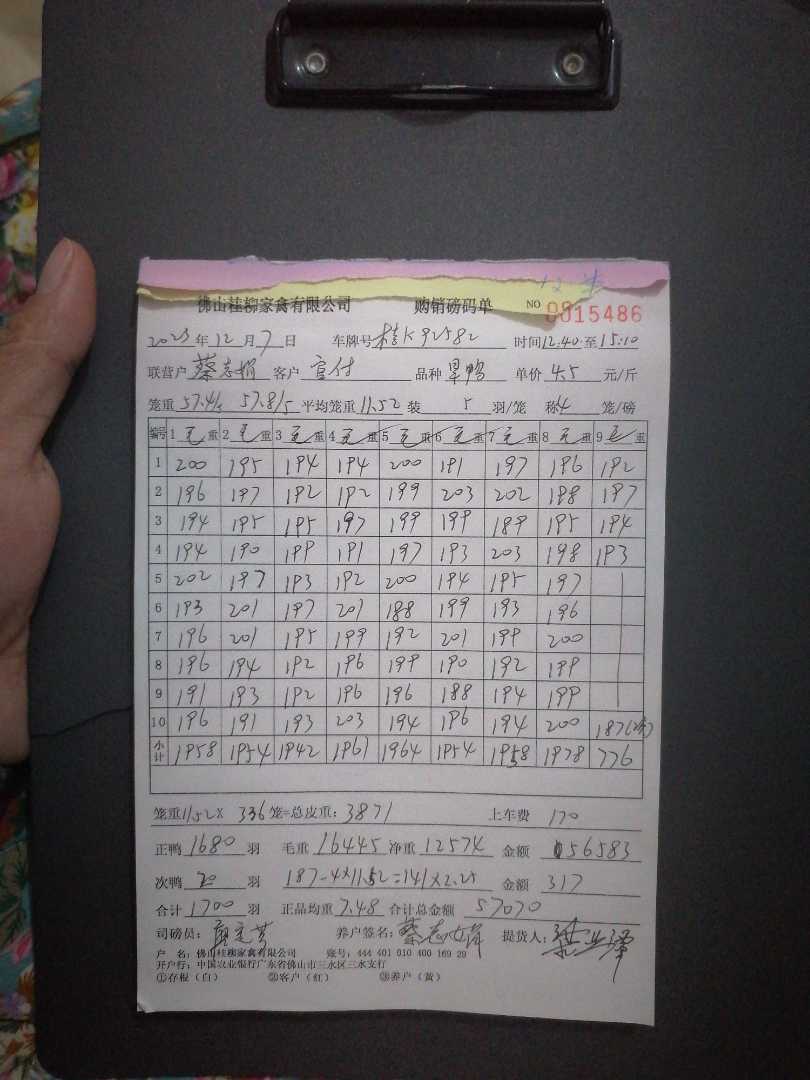 佛山桂柳家禽有限公司 购销磅码单 NO 0015486
2023年12月7日 车牌号 桂K92582 时间12:40至15:10
联营户 蔡志娟 客户 宣付 品种 旱鸭 单价 4.5 元/斤
笼重 57.4/5 57.8/5 平均笼重 11.52 装 5 羽/笼 称 4 笼/磅
编号 1 毛重 2 毛重 3 毛重 4 毛重 5 毛重 6 毛重 7 毛重 8 毛重 9 毛重
1 200 195 194 194 200 191 197 196 192
2 196 197 192 192 199 203 202 198 197
3 194 195 195 197 199 199 189 195 194
4 194 190 199 191 197 193 203 198 193
5 202 197 193 192 200 194 195 197
6 193 201 197 201 188 199 193 196
7 196 201 195 199 192 201 199 200
8 196 194 192 196 199 190 192 199
9 191 193 192 196 196 188 194 199
10 196 191 193 203 194 196 194 200 187(次)
小计 1958 1954 1942 1961 1964 1954 1958 1978 776
笼重11.52× 336 笼=总皮重: 3871 上车费 170
正鸭 1680 羽 毛重 16445 净重 12574 金额 56583
次鸭 20 羽 187-4×11.52=141×2.25 金额 317
合计 1700 羽 正品均重 7.48 合计总金额 57070
司磅员: 养户签名: 蔡志娟 提货人:
户 名: 佛山桂柳家禽有限公司 账号: 444 401 010 400 169 29
开户行: 中国农业银行广东省佛山市三水区三水支行
①存根(白) ②客户(红) ③养户(黄)